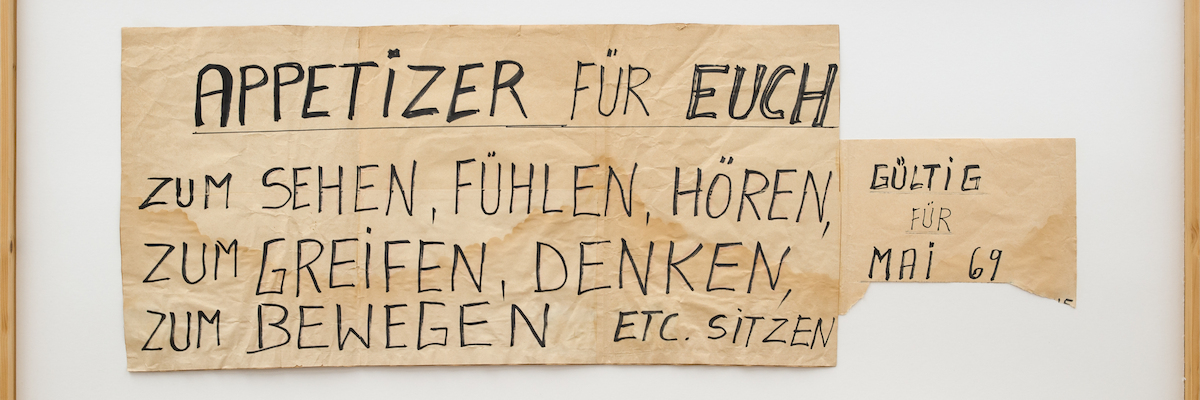 APPETiZER FÜR EUCH
ZUM SEHEN, FÜHLEN, HÖREN,
ZUM GREiFEN, DENKEN,
ZUM BEWEGEN ETC. SiTZEN
GÜLTiG
FÜR
MAi 69